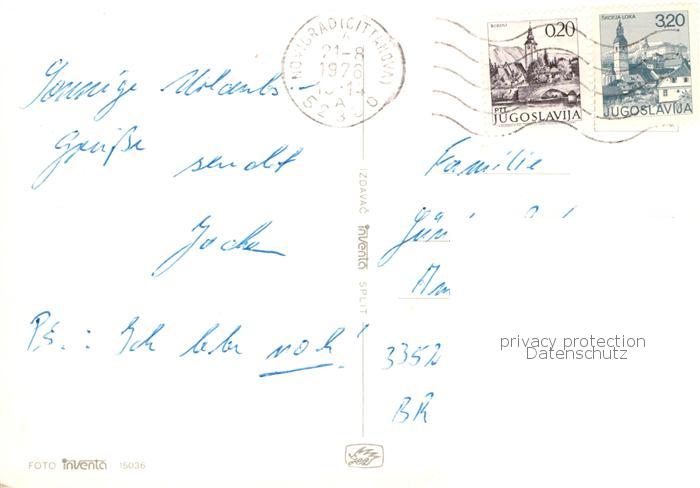 NOVIGRAD (CITTANOVA)
A
21-8
1976
52 3
BOHINJ
0,20
PTT
JUGOSLAVIJA
ŠKOFJA LOKA
3,20
JUGOSLAVIJA
Sonnige Urlaubs-
grüße sendt
Jochen
P.S.: Ich lebe noch!
IZDAVAČ inventa SPLIT
Familie
3352
privacy protection
Datenschutz
FOTO inventa 15036